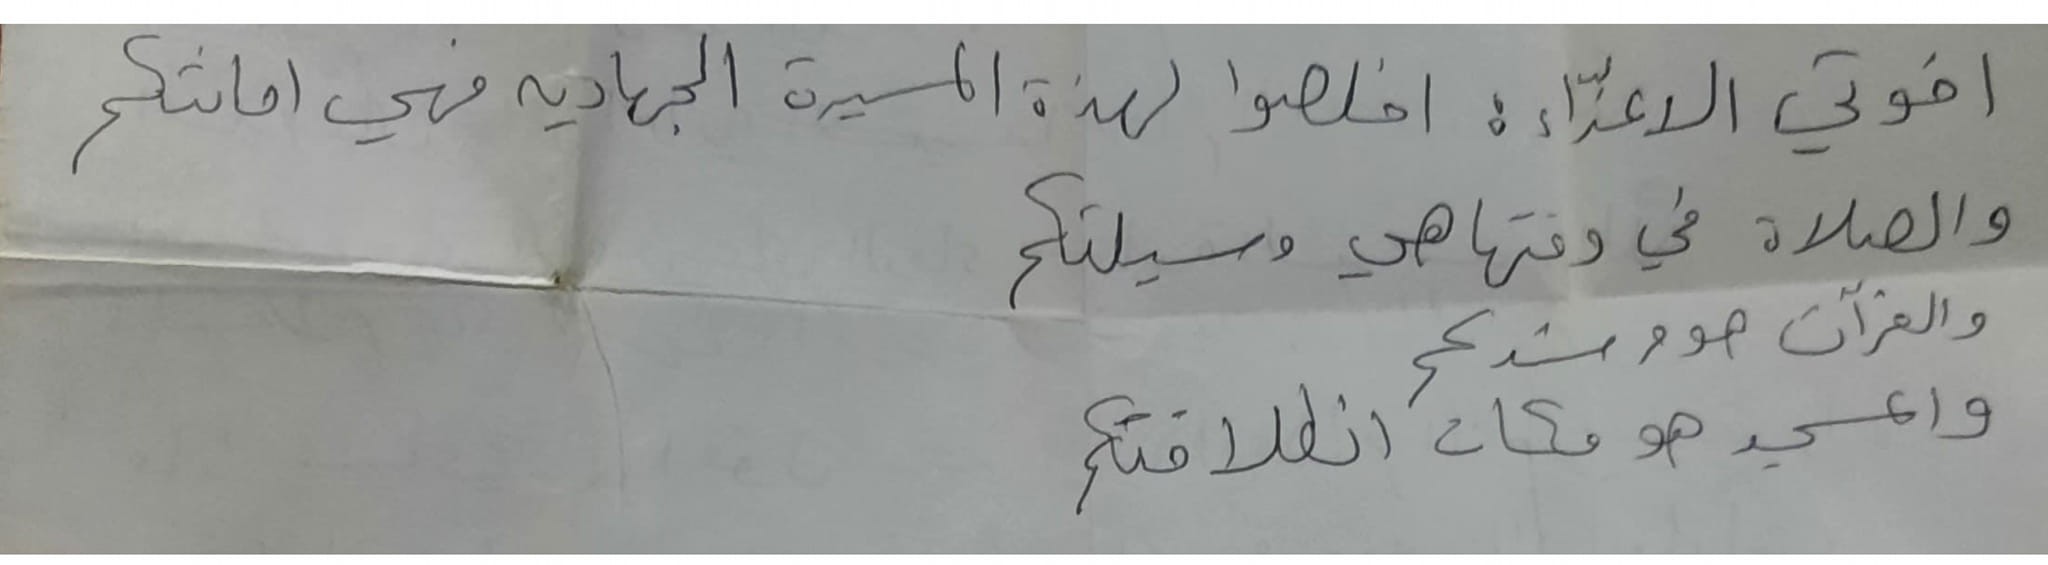 اخوتي الاعزّاء: اخلصوا لهذة المسيرة الجهاديه فهي امانتكم
والصلاة في وقتها هي وسيلتكم
والقرآن هو مرشدكم
والمسجد هو مكان انطلاقتكم